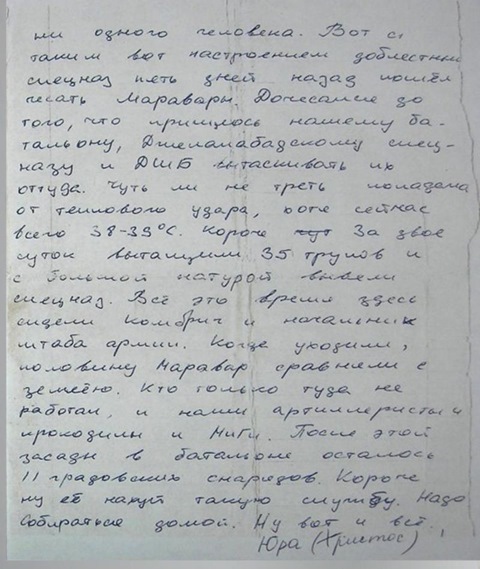 ни одного человека. Вот с
таким вот настроением доблестный
спецназ пять дней назад пошёл
чесать Маравары. Дочесались до
того, что пришлось нашему ба-
тальону, Джелалабадскому спец-
назу и ДШБ вытаскивать их
оттуда. Чуть ли не треть попадала
от теплового удара, хотя сейчас
всего 38-39°С. Короче За двое
суток вытащили 35 трупов и
с большой натурой вывели
спецназ. Всё это время здесь
сидели Комбриг и начальник
штаба армии. Когда уходили,
половину Маравар сравняли с
землёю. Кто только туда не
работал, и наши артиллеристы и
крокодилы и МиГи. После этой
засады в батальоне осталось
11 градовских снарядов. Короче
ну её нахуй такую службу. Надо
собираться домой. Ну вот и всё.
Юра (Христос)